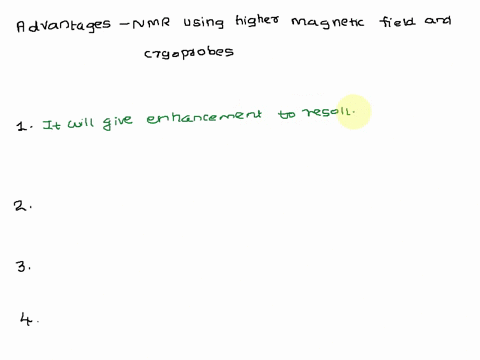 Advantages - NMR using higher magnetic field and
cryoprobes
1. It will give enhancement to resoll.
2.
3.
4.